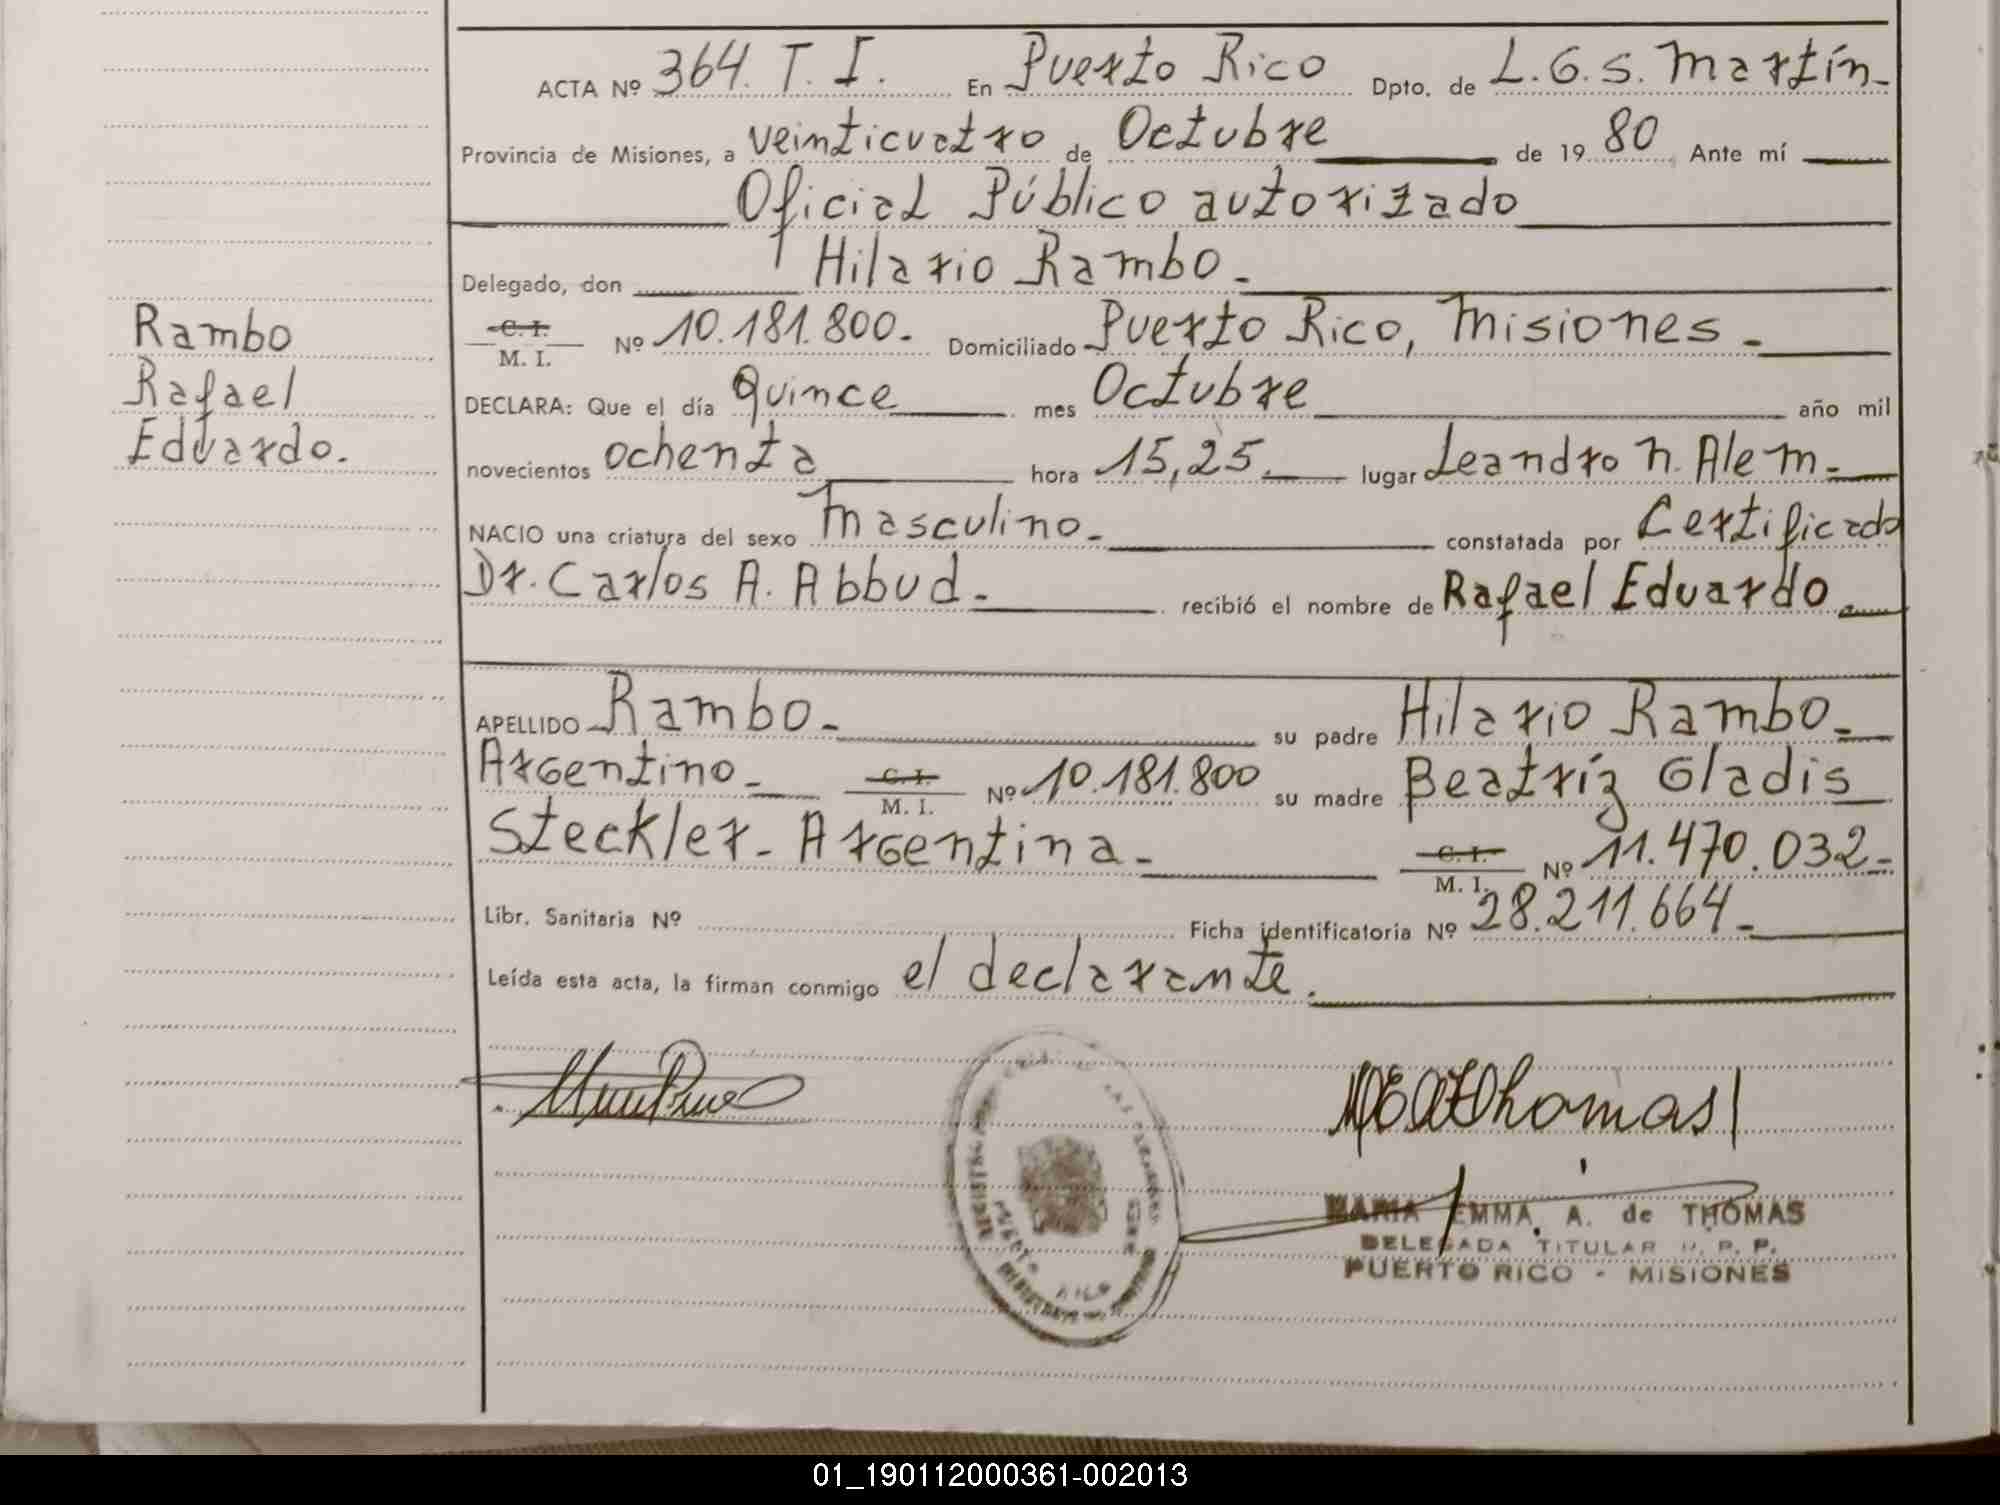 ACTA Nº 364. T. I. En Puerto Rico Dpto. de L.G.S. Martín-
Provincia de Misiones, a veinticuatro de Octubre de 1980 Ante mí
Oficial Público autorizado
Delegado, don Hilario Rambo-
C. I. / M. I. Nº 10.181.800- Domiciliado Puerto Rico, Misiones-
DECLARA: Que el día quince mes Octubre año mil
novecientos ochenta hora 15,25. lugar Leandro N. Alem-
NACIO una criatura del sexo Masculino- constatada por Certificado
Dr. Carlos A. Abbud- recibió el nombre de Rafael Eduardo
Rambo
Rafael
Eduardo.
APELLIDO Rambo- su padre Hilario Rambo-
Argentino- C. I. / M. I. Nº 10.181.800 su madre Beatríz Gladis
Steckler- Argentina- C. I. / M. I. Nº 11.470.032-
Libr. Sanitaria Nº Ficha identificatoria Nº 28.211.664-
Leída esta acta, la firman conmigo el declarante.
Thomas
MARIA EMMA A. de THOMAS
DELEGADA TITULAR R. P. P.
PUERTO RICO - MISIONES
01_190112000361-002013